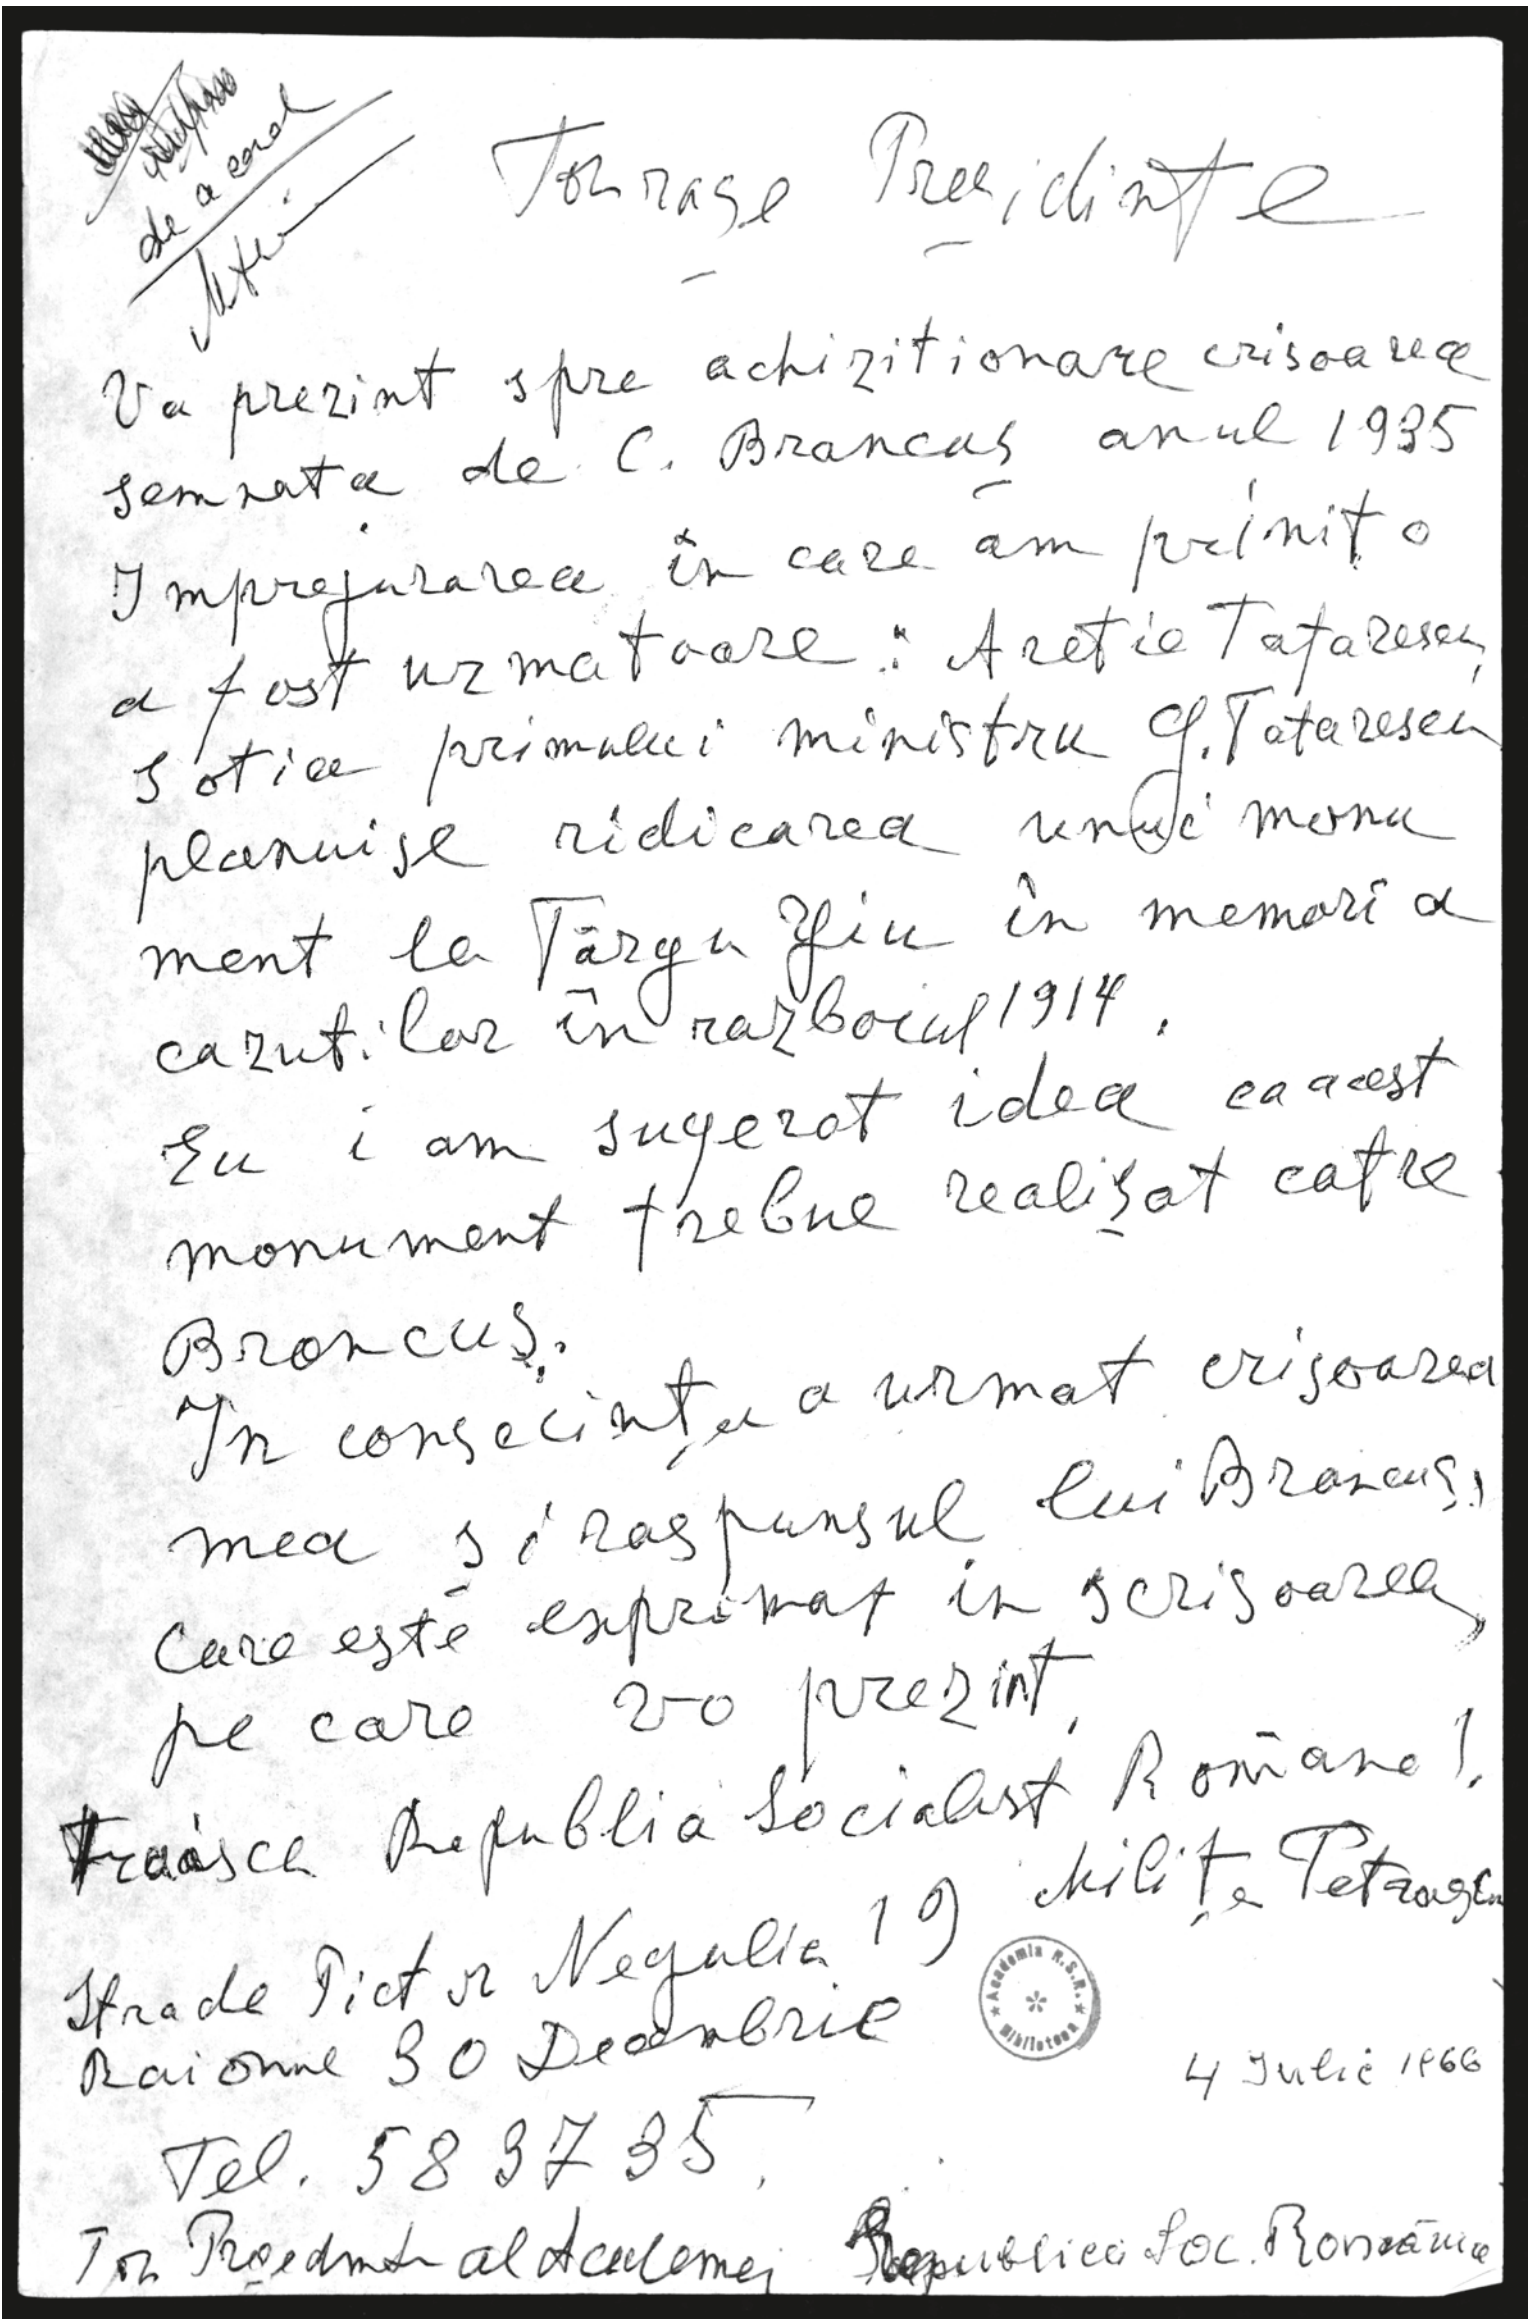 de acord
Tovrașe Președinte
Va prezint spre achizitionare crisoarea
semnata de C. Brancuș anul 1935
Imprejurarea în care am primit o
a fost urmatoare : Aretie Tatarescu,
sotia primului ministru G. Tatarescu
planuise ridicarea unui monu
ment la Târgu Jiu în memoria
cazutilor în razboiul 1914.
Eu i am sugerat idea ca acest
monument trebue realisat catre
Brancuș.
In consecința a urmat crisoarea
mea și raspunsul lui Brancuș,
care este exprimat in scrisoarea,
pe care vo prezint.
Traiasca Republia Socialist Române!
Milița Petrașcu
Strada Pictor Negulia 19
Raionne 30 Decembrie
Academia R.S.R. Biblioteca
4 Iulie 1966
Tel. 583735.
Tov Președinte al Academei Republica Soc. România